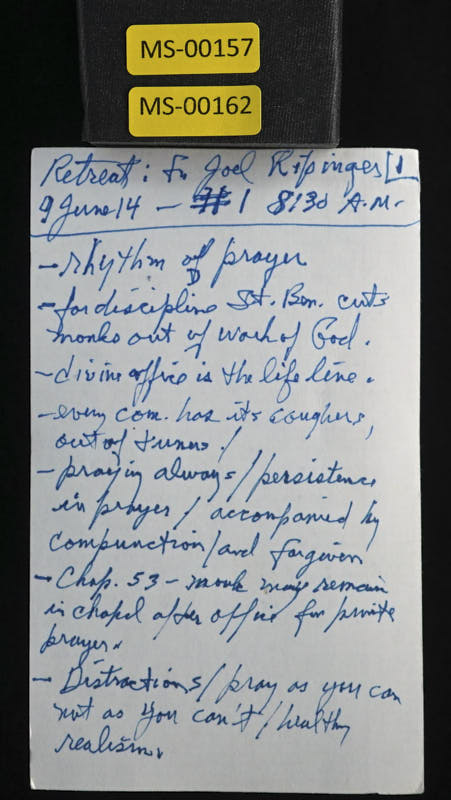 MS-00157
MS-00162
Retreat: Fr Joel Rippinger 1
9 June 14 - #1 8:30 A.M.
- rhythm of prayer
- for discipline St. Ben. cuts
monks out of work of God.
- divine office is the life line.
- every com. has its coughers,
out of tuners!
- praying always/persistence
in prayer/ accompanied by
compunction/and forgiven
- Chap. 53 - monk may remain
in chapel after office for private
prayer.
- Distractions/pray as you can
not as you can't/healthy
realism.